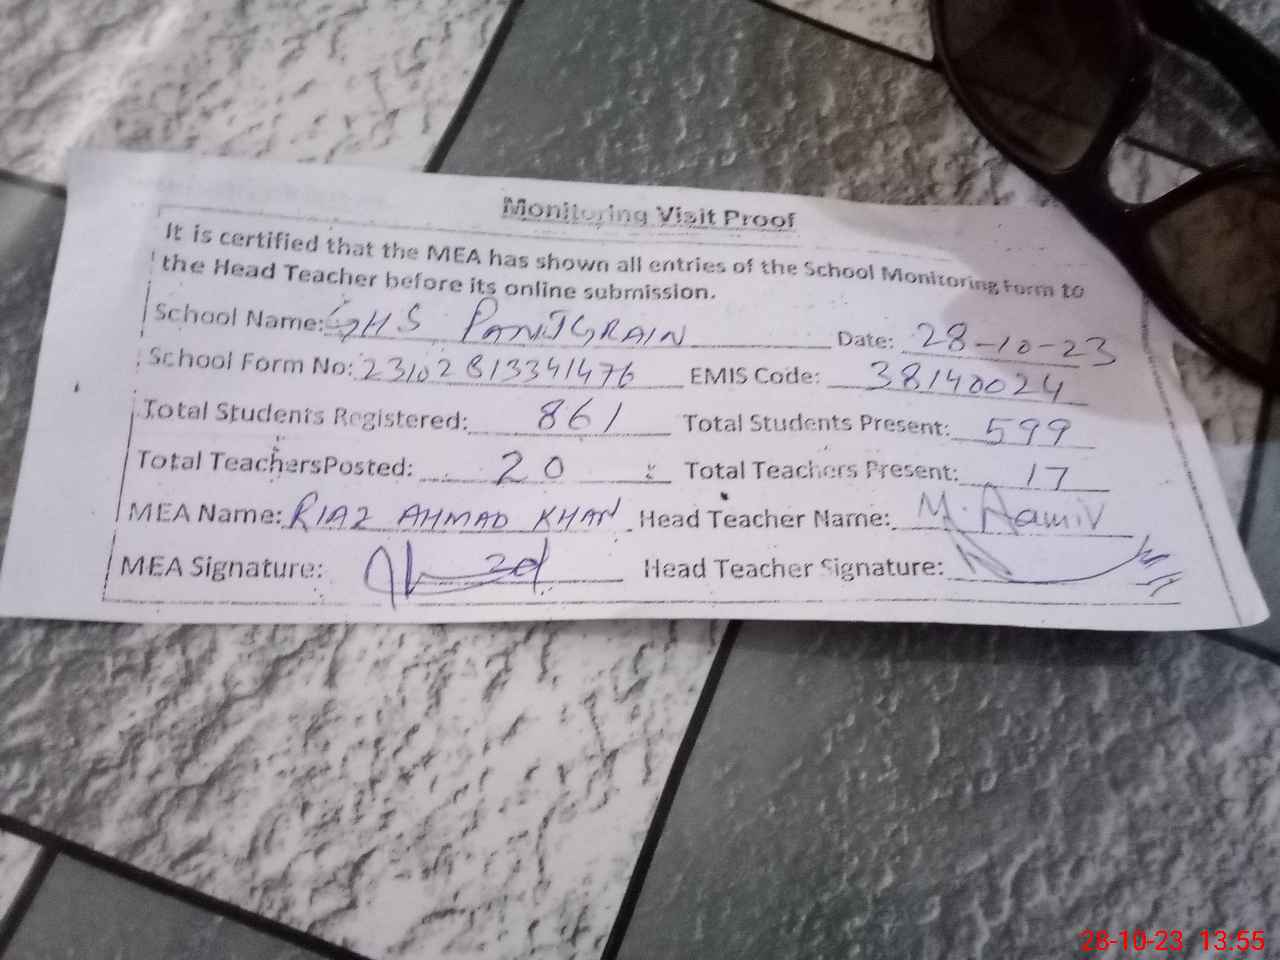 Monitoring Visit Proof
It is certified that the MEA has shown all entries of the School Monitoring Form to
the Head Teacher before its online submission.
School Name: GHS PANJGRAIN Date: 28-10-23
School Form No: 23102813341476 EMIS Code: 38140024
Total Students Registered: 861 Total Students Present: 599
Total TeachersPosted: 20 Total Teachers Present: 17
MEA Name: RIAZ AHMAD KHAN Head Teacher Name: M. Aamir
MEA Signature: Head Teacher Signature:
28-10-23 13:55